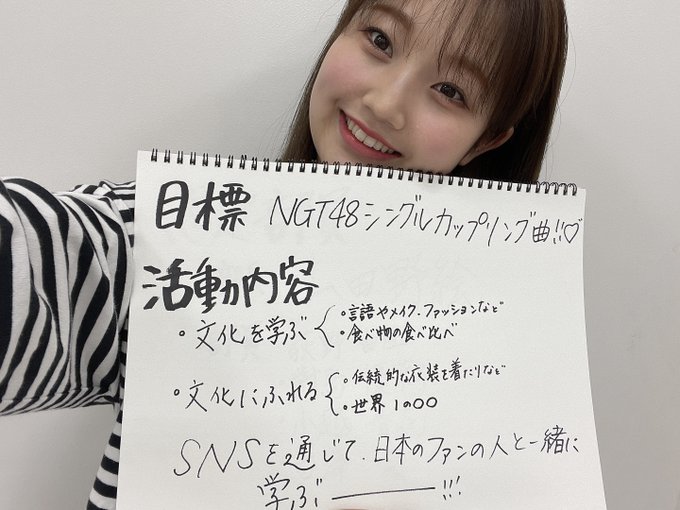 目標 NGT48シングルカップリング曲!!♡
活動内容
・文化を学ぶ
・言語やメイク.ファッションなど
・食べ物の食べ比べ
・文化にふれる
・伝統的な衣装を着たりなど
・世界1の〇〇
SNSを通じて、日本のファンの人と一緒に
学ぶ―――!!!